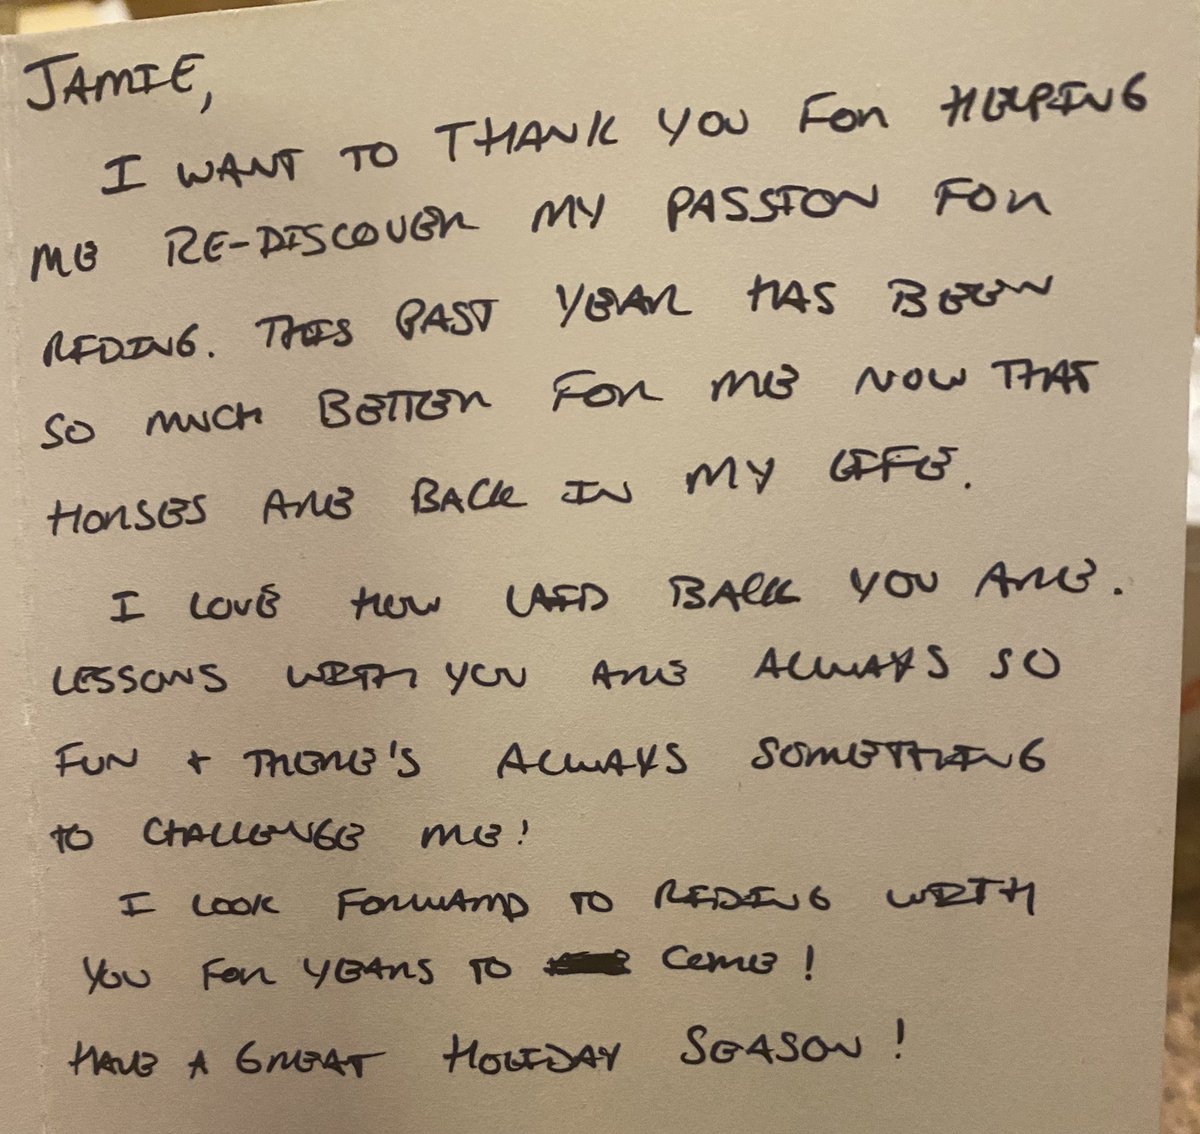 JAMIE,
I WANT TO THANK YOU FOR HELPING
ME RE-DISCOVER MY PASSION FOR
RIDING. THIS PAST YEAR HAS BEEN
SO MUCH BETTER FOR ME NOW THAT
HORSES ARE BACK IN MY LIFE.
I LOVE HOW LAID BACK YOU ARE.
LESSONS WITH YOU ARE ALWAYS SO
FUN + THERE'S ALWAYS SOMETHING
TO CHALLENGE ME!
I LOOK FORWARD TO RIDING WITH
YOU FOR YEARS TO COME!
HAVE A GREAT HOLIDAY SEASON!